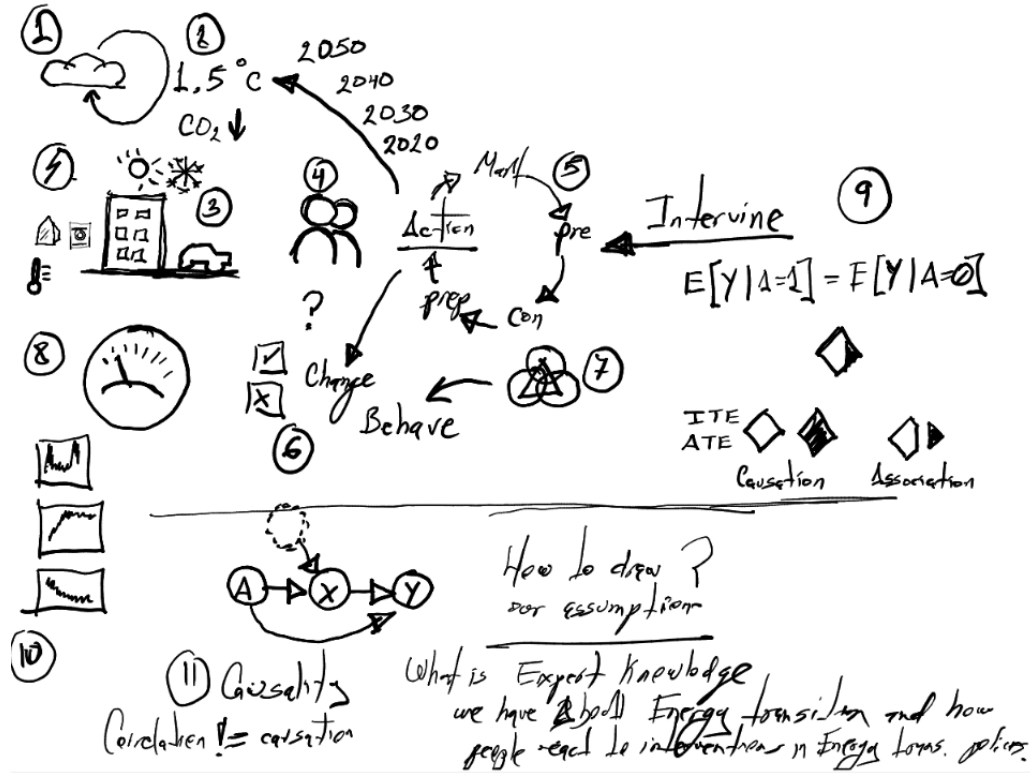 1
2
1,5°C
CO2
2050
2040
2030
2020
3
4
5
Action
pre
Con
prep
Intervine
9
E[Y|A=1] = E[Y|A=0]
?
Change
Behave
6
7
8
ITE
ATE
Causation
Association
A
X
Y
How to draw ?
our assumption
10
11 Causality
Correlation != causation
What is Expert Knowledge
we have About Energy transition and how
people react to interventions in Energy trans.